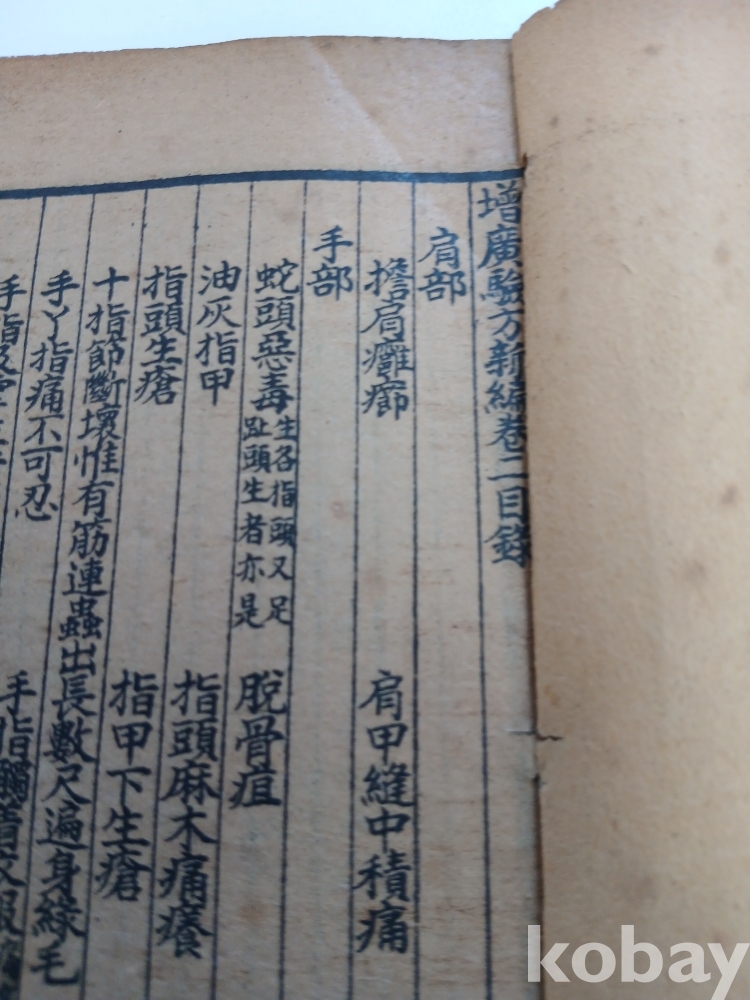 增廣驗方新編卷二目錄
肩部
擔肩癰癤 肩甲縫中積痛
手部
蛇頭惡毒 生各指頭又足趾頭生者亦是 脫骨疽
油灰指甲 指頭麻木痛癢
指頭生瘡 指甲下生瘡
十指節斷壞惟有筋連蟲出長數尺遍身綠毛
手丫指痛不可忍
手指
kobay